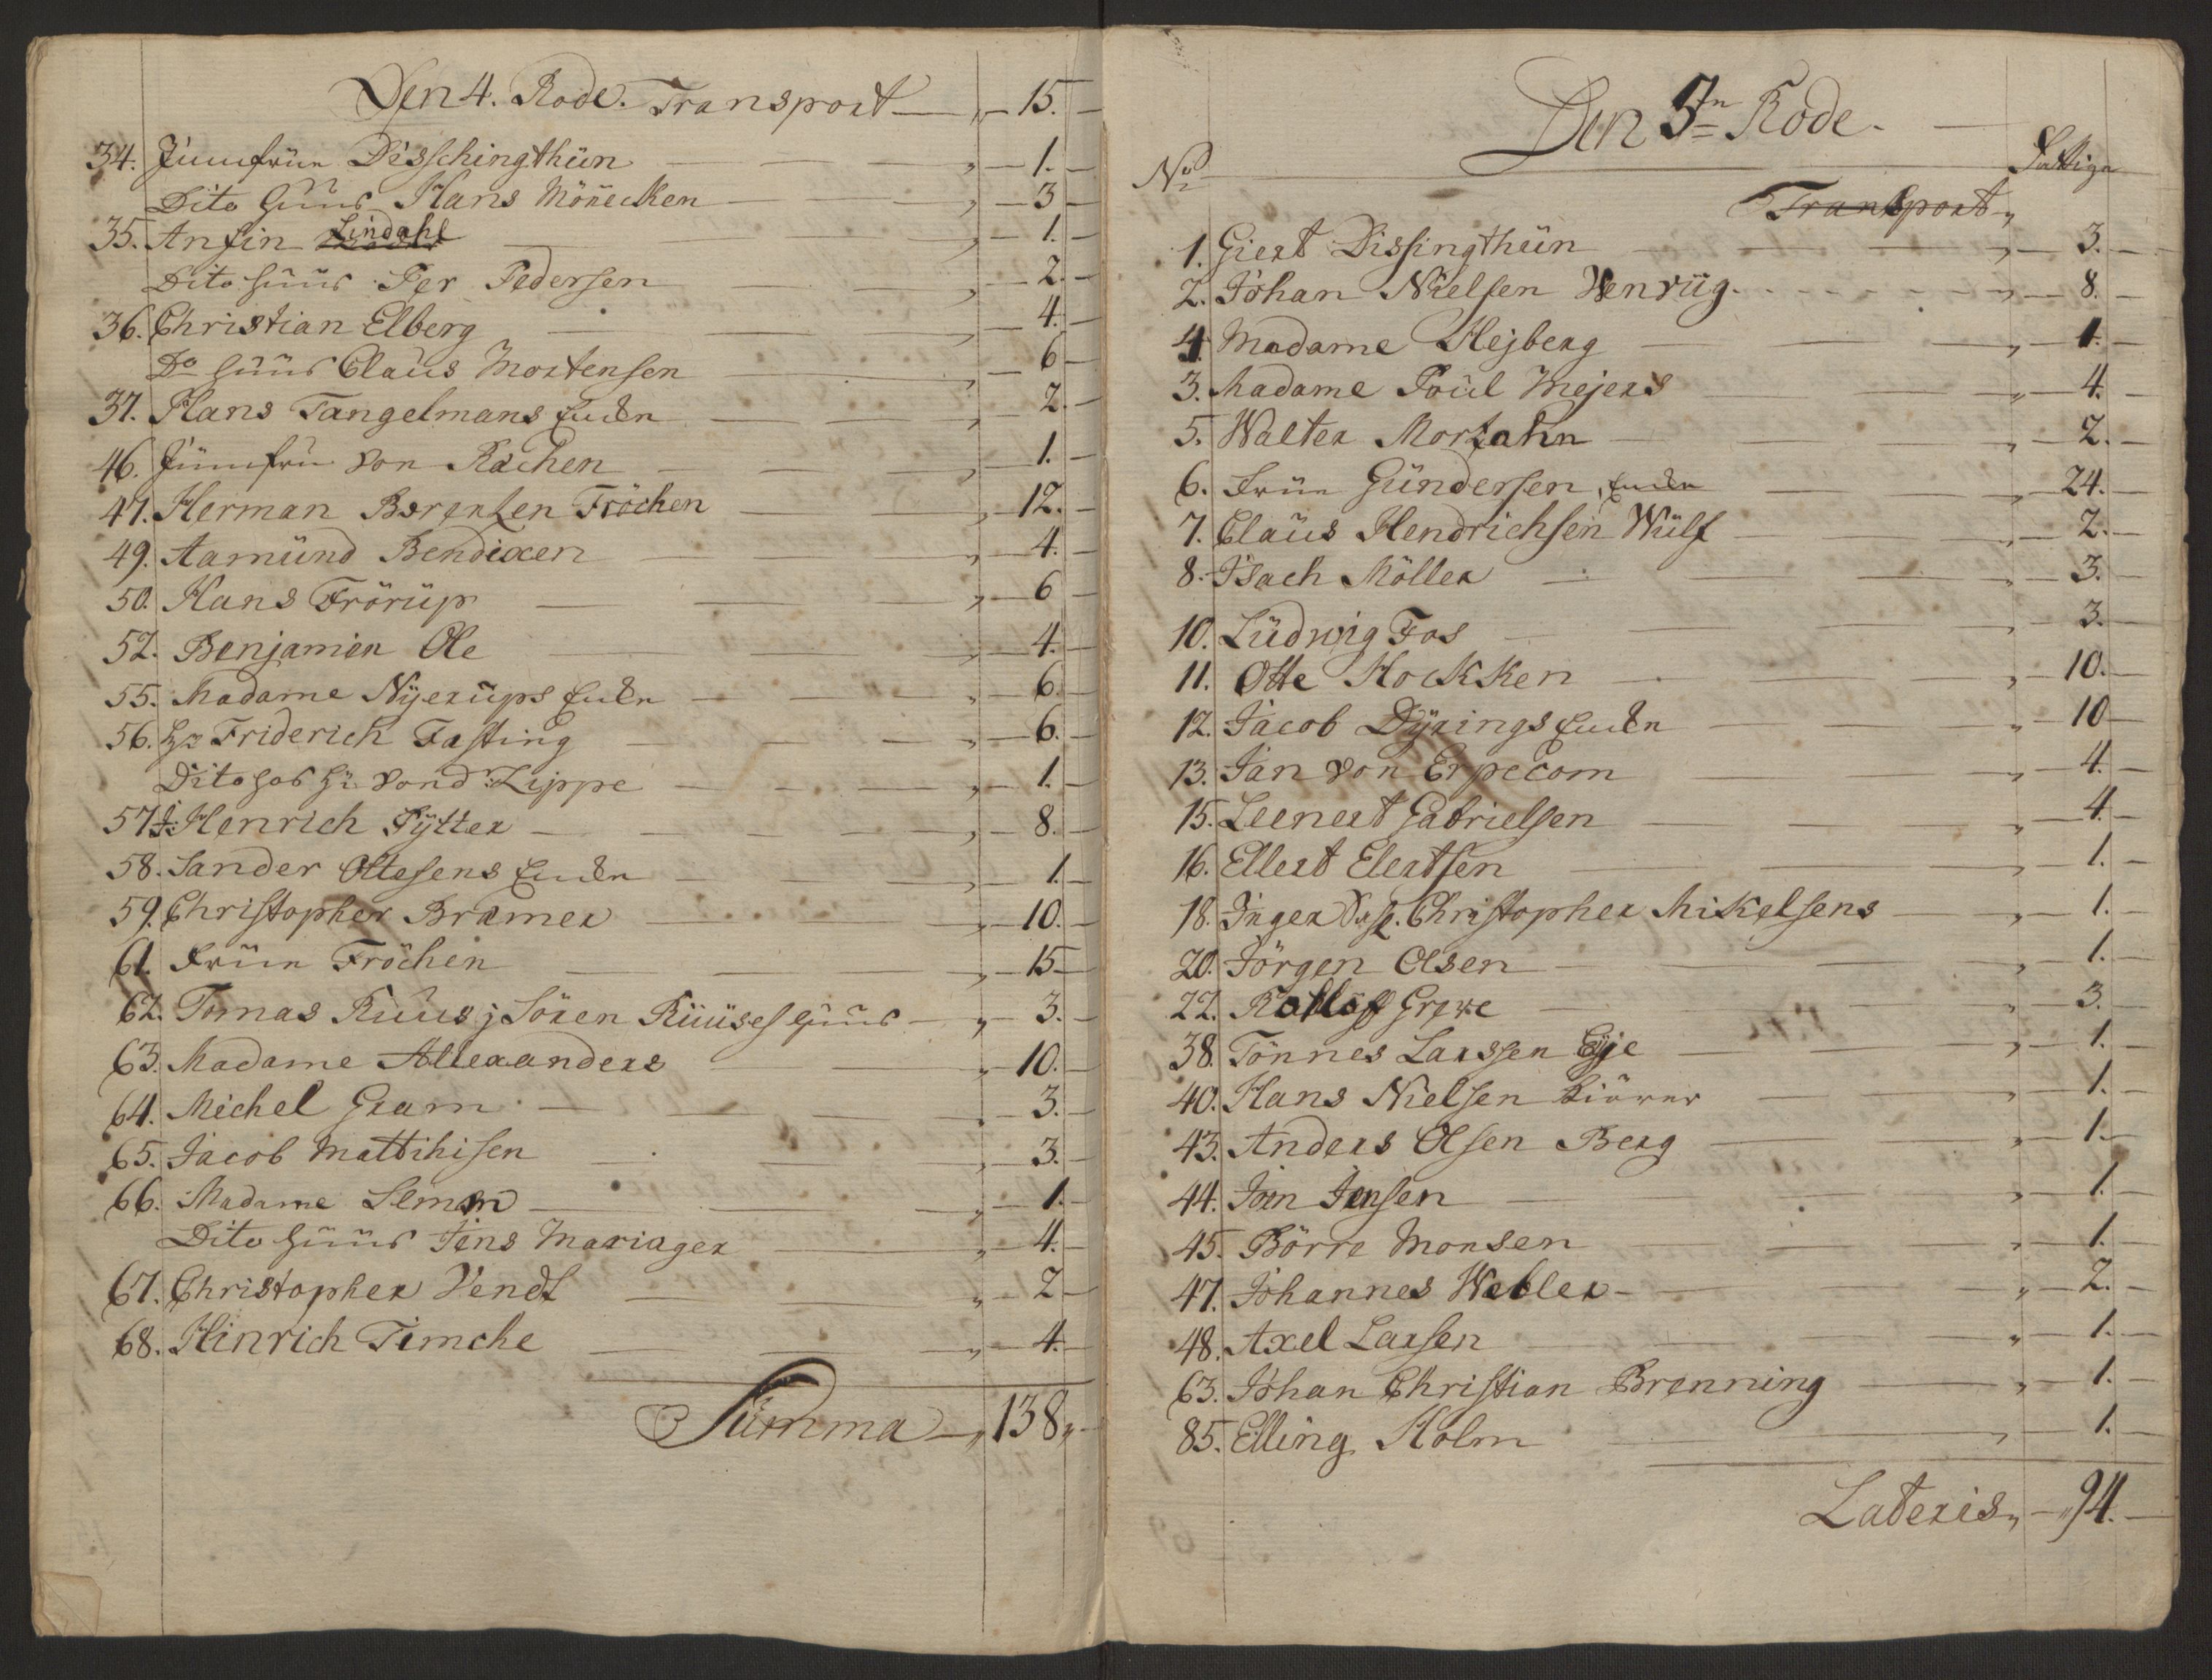 Den 4. Rode. Transport 15.
34. Jumfrüe Disschingthün 1.
Dito Huus Hans Mönecken 3
35. Anfin Lindahl 1.
Dito Huus Per Pedersen 2.
36. Christian Elberg 4.
Do Huus Claus Mortensen 6
37. Hans Tangelmans Encke 2.
46. Jumfru von Rachen 1.
47. Herman Borentzen Fröchen 12.
49. Aamünd Bendixen 4.
50. Hans Frörüp 6
52. Benjamin Ole 4.
55. Madame Nÿerups Encke 6.
56. Hr Friderich Fasting 6.
Dito hos Hr. vond: Lippe 1.
57. Henrich Pÿtter 8.
58. Sander Ottesens Encke 1.
59. Christopher Bramer 10.
61. Früe Fröchen 15
62. Tomas Ruus j Sören Rüüses Huus 3.
63. Madame Allexanders 10.
64. Michel Gram 3.
65. Jacob Mattihisen 3.
66. Madame Leman 1.
Dito Huus Jens Mariager 4.
67. Christopher Vendt 2
68. Hinrich Timche 4.
Summa 138
Den 5te Rode.
No Fattige
Transport
1. Giert Dissingthün 3.
2. Johan Nielsen Wenrüg 8.
4. Madame Hejberg 1.
3. Madame Poul Mejers 4.
5. Walter Mortzahn 2.
6. Früe Gündersen Encke 24.
7. Claus Hendrichsen Wülf 2.
8. Isach Möller 3.
10. Lüdwig Fos 3.
11. Otte Hockken 10.
12. Jacob Dÿrings Encke 10
13. Jan von Erpecom 4.
15. Leenert Gabrielsen 4.
16. Ellert Elertsen 1.
18. Inger Sl. Christopher Mikelsens 1.
20. Jörgen Olsen 1.
22. Rohloff Greve 3.
38. Tönnes Larssen Eÿe 1.
40. Hans Nielsen 1.
43. Anders Olsen Berg 1.
44. Jon Jensen 1.
45. Börre Monsen 1.
47. Johannes Webler 2.
48. Axel Larsen 1.
63. Johan Christian Brenning 1.
85. Elling Holm 1.
Lateris 94.